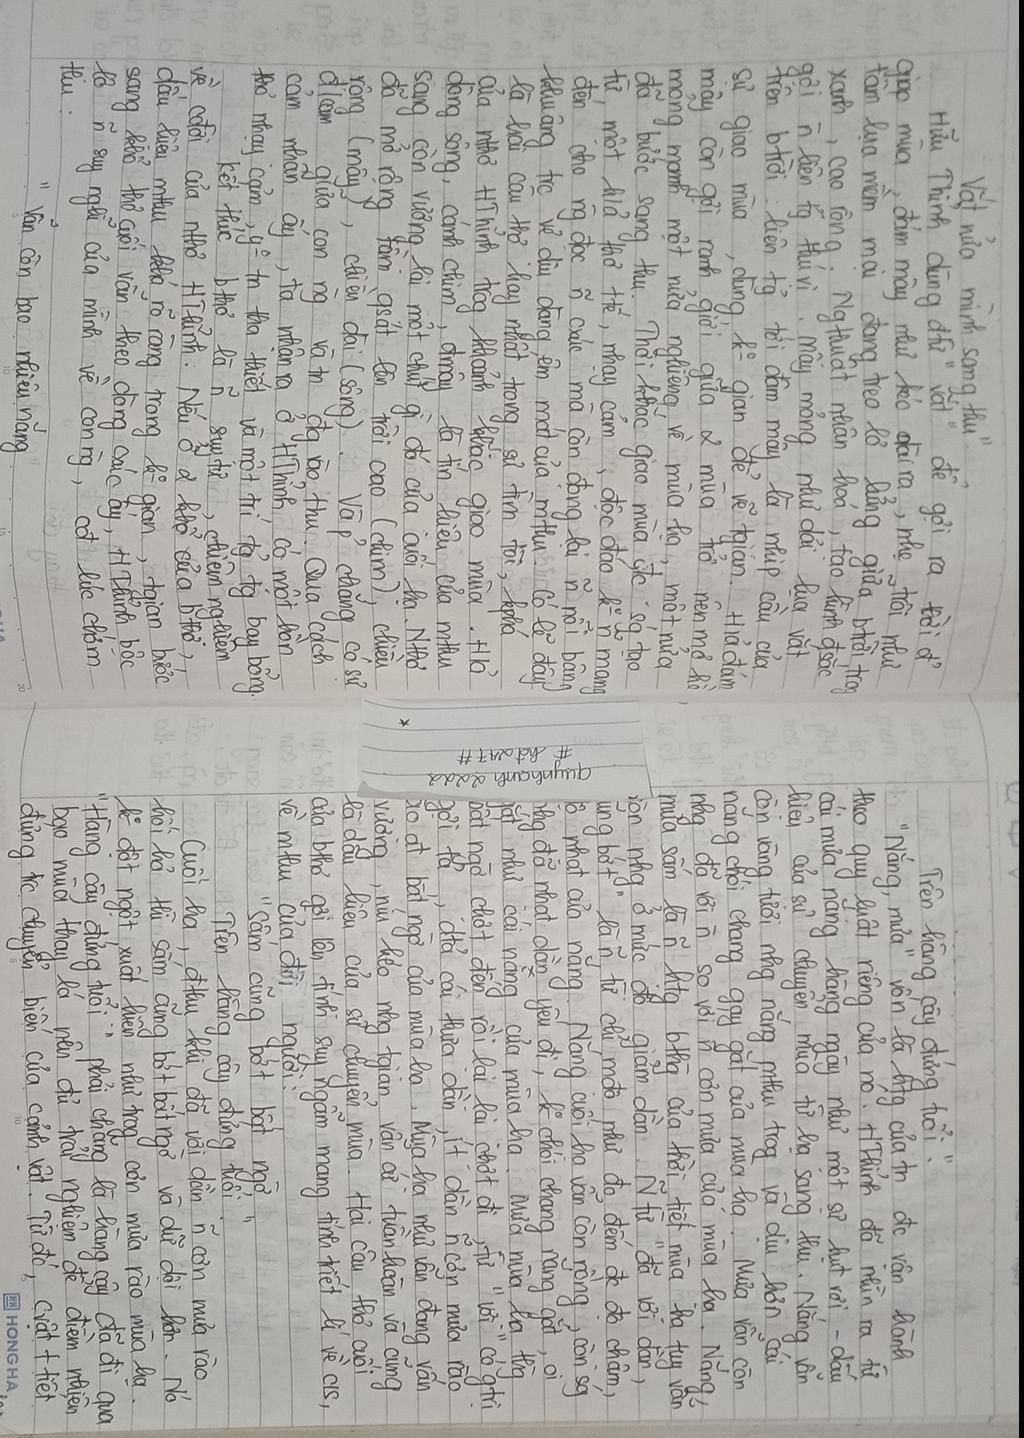 Vắt nửa mình sang thu"
Hữu Thỉnh dùng đtừ "vắt" để gợi ra thời đ'
giao mùa, đám mây như kéo dài ra, nhẹ trôi như
tấm lụa mềm mại đang treo lơ lửng giữa btrời trog
xanh, cao rộng. Nghthuật nhân hoá, tạo hình đsắc
gợi n~ liên tg thú vị. Mây mỏng như dải lụa vắt
trên btrời liên tg tới đám mây là nhịp cầu của
sự giao mùa, dùng k0 gian để vẽ tgian. H/ả đám
mây còn gợi ranh giới giữa 2 mùa trở nên mơ hồ
mong manh một nửa nghiêng về mùa hạ, một nửa
đã bước sang thu. Thời khắc giao mùa đc sg tạo
từ một h/ả thơ t/tế, nhạy cảm, độc đáo k0 n~ mang
đến cho ng đọc n~ cxúc mà còn đọng lại n~ nỗi bâng
khuâng trc vẻ dịu dàng êm mát của mthu. Có lẽ đây
là hai câu thơ hay nhất trong sự tìm tòi, kphá
của nhà thơ HThỉnh trog khoảnh khắc giao mùa. H/ả
dòng sông, cánh chim, đmây là tín hiệu của mthu
sang còn vương lại một chút gì đó của cuối hạ. Nthơ
đã mở rộng tầm qsát lên trời cao (chim), chiều
rộng (mây), chiều dài (sông). Và p' chăng có sự
đ/cảm giữa con ng và tn đg vào thu. Qua cách
cảm nhận ấy, ta nhận ra ở HThỉnh có một hồn
thơ nhạy cảm, y' tn tha thiết và một trí tg tg bay bổng.
Kết thúc bthơ là n~ suy tư, chiêm nghiệm
về cđời của nthơ HThỉnh. Nếu ở 2 khổ đầu bthơ,
dấu hiệu mthu khá rõ ràng trong k0 gian, tgian bước
sang khổ thơ cuối vẫn theo dòng cxúc ấy, HThỉnh bộc
lộ n~ suy nghĩ của mình về con ng, cđ lúc chớm
thu.
"Vẫn còn bao nhiêu nắng
Trên hàng cây đứng tuổi".
"Nắng, mưa" vốn là htg của tn đc vận hành
theo quy luật riêng của nó. HThỉnh đã nhìn ra từ
cái mưa nắng hàng ngày như một sự hụt vơi, - dấu
hiệu của sự chuyển mùa từ hạ sang thu. Nắng vẫn
còn vàng tươi nhg nắng mthu trog và dịu hơn cái
nắng chói chang gay gắt của mùa hạ. Mưa vẫn còn
nhg đã vơi n~ so với n~ cơn mưa của mùa hạ. Nắng,
mưa, sấm là n~ htg bthg của thời tiết mùa hạ tuy vẫn
còn nhg ở mức độ giảm dần. N~ từ "đã vơi dần,
cũng bớt" là n~ từ chỉ mđộ như đo đếm đc đó chậm,
độ nhạt của nắng. Nắng cuối hạ vẫn còn nồng, còn sg
nhg đã nhạt dần yếu đi, k0 chói chang nắng gắt, oi
rát như cái nắng của mùa hạ. Mưa mùa hạ thg
bất ngờ chợt đến rồi lại lại chợt đi, từ "vơi" có gtrị
gợi tả, dtả cái thưa dần, ít dần n~ cơn mưa rào
ào ạt bất ngờ của mùa hạ. Mùa hạ như vẫn đang vấn
vương, níu kéo nhg tgian vẫn cứ tuần hoàn và cũng
là dấu hiệu của sự chuyển mùa. Hai câu thơ cuối
của bthơ gợi lên tính suy ngẫm mang tính triết lí về c/s,
về mthu của đời người:
"Sấm cũng bớt bất ngờ
Trên hàng cây đứng tuổi".
Cuối hạ, đthu khi đã vơi dần n~ cơn mưa rào
hối hả thì sấm cũng bớt bất ngờ và dữ dội hơn. Nó
k0 đột ngột xuất hiện như trog cơn mưa rào mùa hạ.
"Hàng cây đứng tuổi" phải chăng là hàng cây đã đi qua
bao mùa thay lá nên đủ trải nghiệm để điềm nhiên
đứng trc chuyển biến của cảnh vật. Từ đó, cvật t tiết
quynhanh2222
#hd247#
*
HONGHA